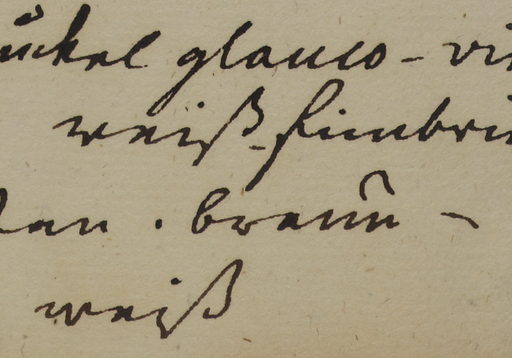 ückel glauco-vi
weiß-fimbri
an. braun-
weiß